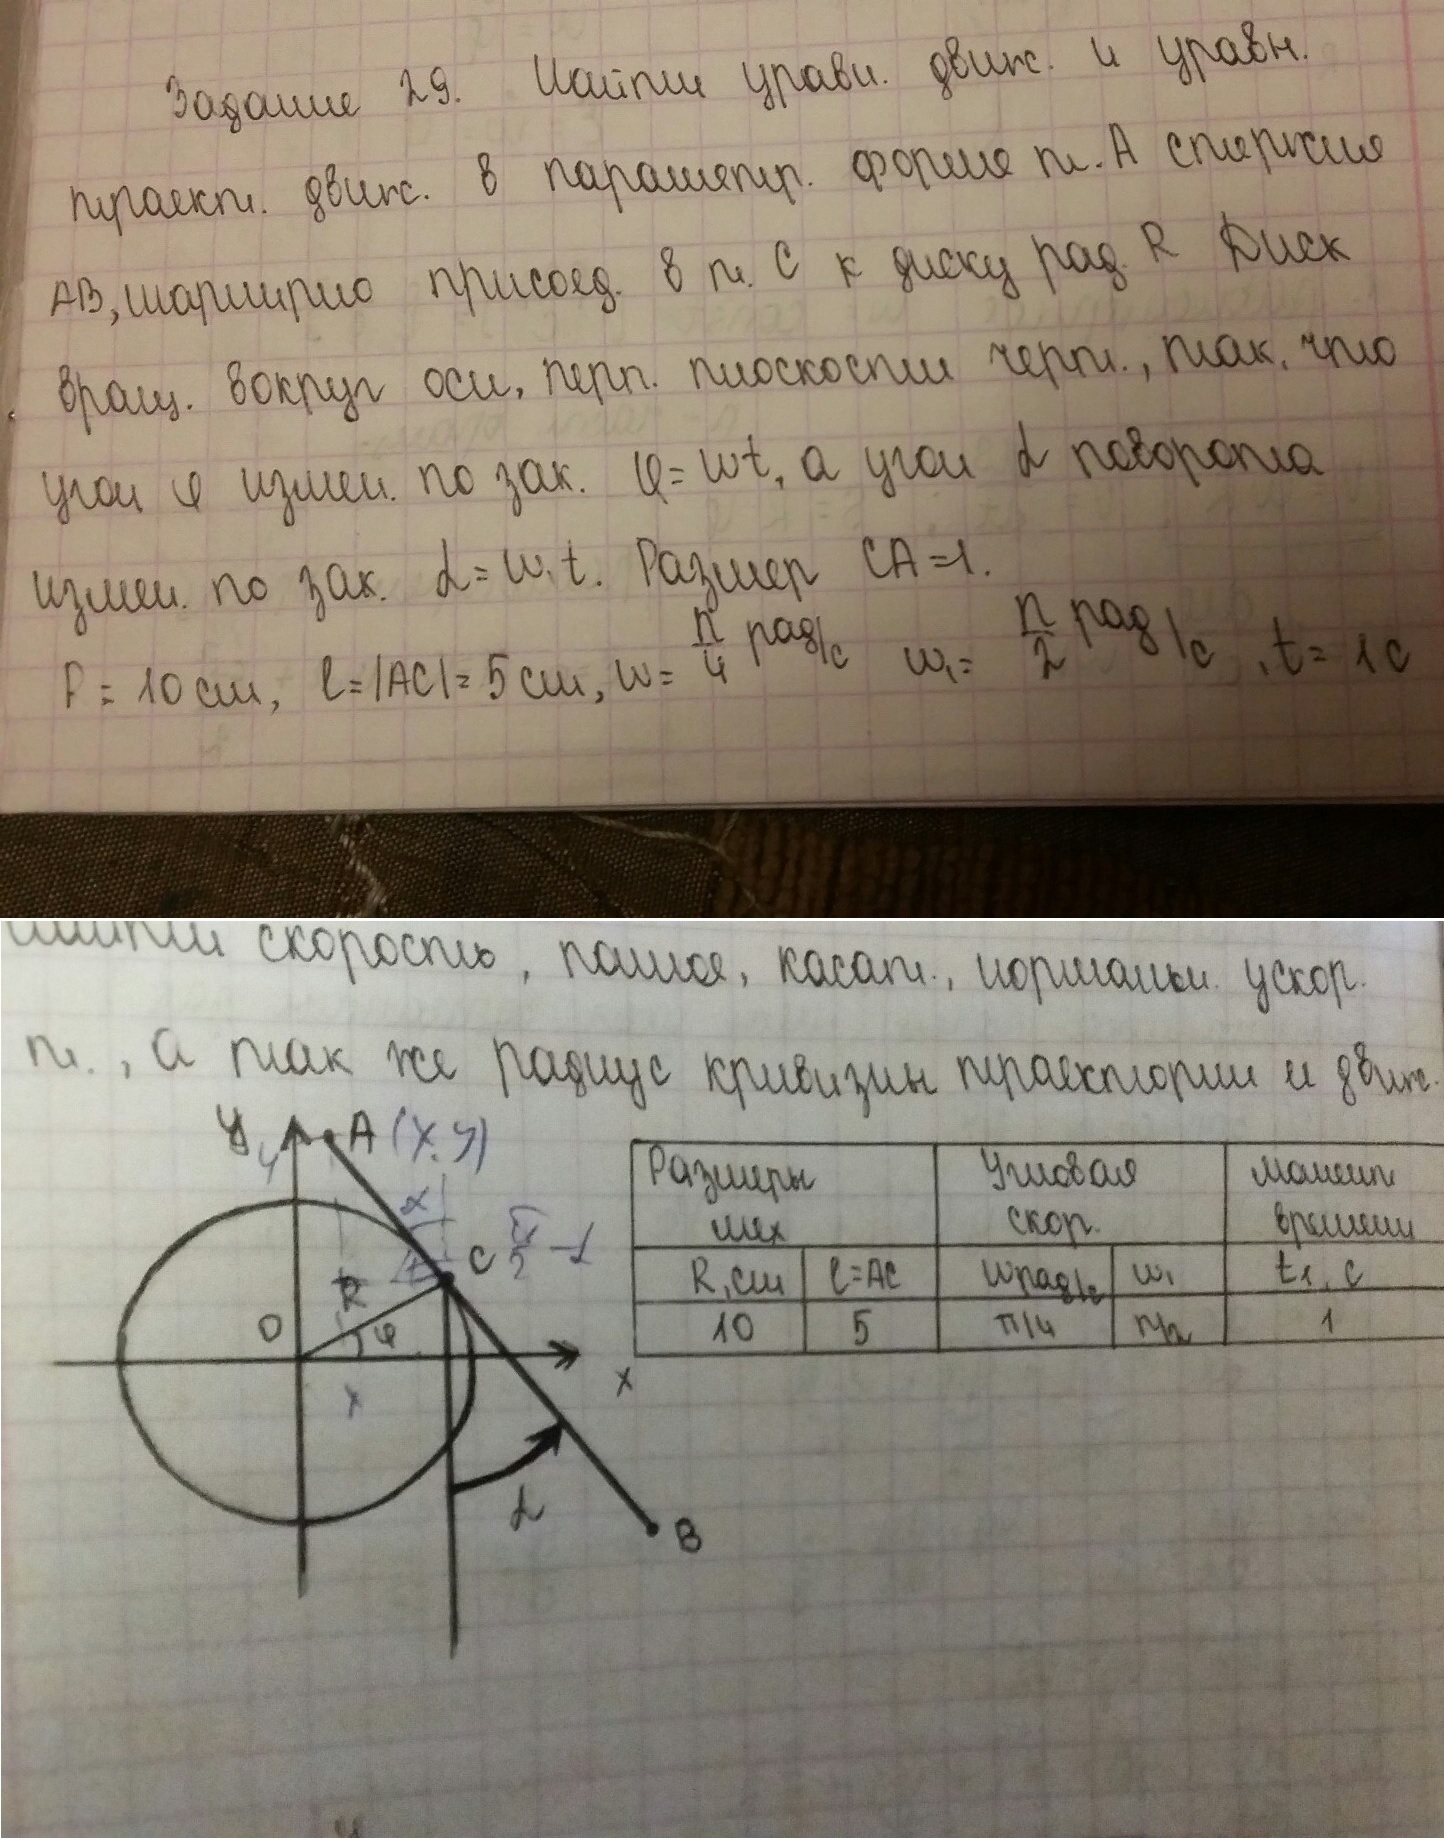 Задание 29. Найти уравн. движ. и уравн.
траект. движ. в параметр. форме т. А стержня
АВ, шарнирно присоед. в т. С к диску рад. R Диск
вращ. вокруг оси, перп. плоскости черт., так, что
угол φ измен. по зак. φ=wt, а угол α поворота
измен. по зак. α=w₁t. Размер СА=1.
R=10см, l=|AC|=5см, w=π/4 рад/с w₁=π/2 рад/с, t=1с
найти скорость, полное, касат., нормальн. ускор.
т., а так же радиус кривизн траектории и движ.
y
y
A (x.y)
α
C π/2-α
R
O
φ
x
x
α
B
Размеры мех
Угловая скор.
Момент времени
R, см
l=AC
wрад/с
w₁
t₁, с
10
5
π/4
π/2
1